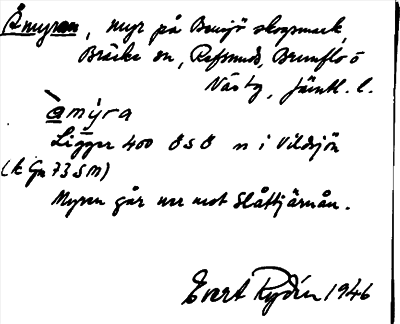 Åmyran, myr på Bensjö skogsmark,
Bräcke sn, Refsunds, Brunflo o
Näs tg, Jämtl. l.
àmýra
Ligger 400 ÖSÖ n i Vildsjön
(k Gn 73 SM)
Myren går ner mot Slåttjärnån.
Evert Rydén 1946